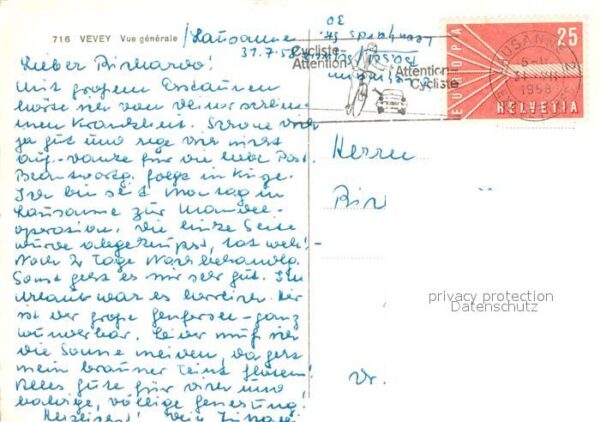 716 VEVEY Vue générale
Lausanne
31.7.58
Lieber Birkardo!
Mit großem Erstaunen
hörte ich von deiner
Krankheit. Schone dich
ja gut und rege dich nicht
auf. Danke für die liebe Post.
Beantwortg. folgt in Kürze.
Ich bin seit Montag in
Lausanne zur Mandel-
operation, die linke Seite
wurde
Noch 2 Tage Nachbehandlg.
Sonst geht es mir sehr gut. Im
Urlaub war es herrlich. Hier
ist der große Genfersee - ganz
wunderbar. Leider muß ich
die Sonne meiden, da geht
mein brauner Teint flöten!
Alles Gute für dich und
baldige, völlige Genesung!
Herzlichst! Dein
30
Leonhards Str.
Basel
Cycliste-
Attention
Attention-
Cycliste
LAUSANNE 2
1958
EUROPA
25
HELVETIA
Herrn
privacy protection
Datenschutz